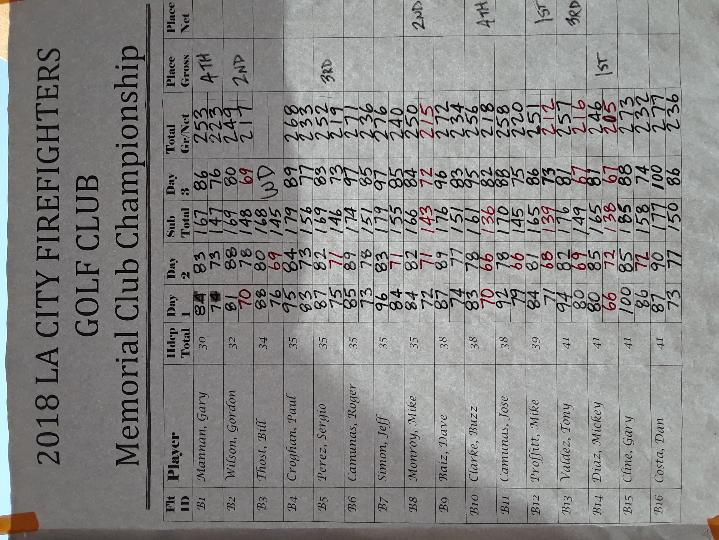 2018 LA CITY FIREFIGHTERS
GOLF CLUB
Memorial Club Championship
Flt ID Player Hdcp Total Day 1 Day 2 Sub Total Day 3 Total Gr/Net Place Gross Place Net
B1 Mannan, Gary 30 84 83 167 86 253 4TH
74 73 147 76 223
B2 Wilson, Gordon 32 81 88 169 80 249 2ND
70 78 148 69 217
B3 Thost, Bill 34 88 80 168 WD
76 69 145
B4 Croghan, Paul 35 95 84 179 89 268
83 73 156 77 233
B5 Perez, Sergio 35 87 82 169 83 252 3RD
75 71 146 73 219
B6 Camunas, Roger 35 85 89 174 97 271
73 78 151 85 236
B7 Simon, Jeff 35 96 83 179 97 276
84 71 155 85 240
B8 Monroy, Mike 35 84 82 166 84 250 2ND
72 71 143 72 215
B9 Raiz, Dave 38 87 89 176 96 272
74 77 151 83 234
B10 Clarke, Buzz 38 83 78 161 95 256 4TH
70 66 136 82 218
B11 Camunas, Jose 38 92 78 170 88 258
79 66 145 75 220
B12 Proffitt, Mike 39 84 81 165 86 251 1ST
71 68 139 73 212
B13 Valdez, Tony 41 94 82 176 81 257 3RD
80 69 149 67 216
B14 Diaz, Mickey 41 80 85 165 81 246 1ST
66 72 138 67 205
B15 Cline, Gary 41 100 85 185 88 273
86 72 158 74 232
B16 Costa, Dan 41 87 90 177 100 277
73 77 150 86 236